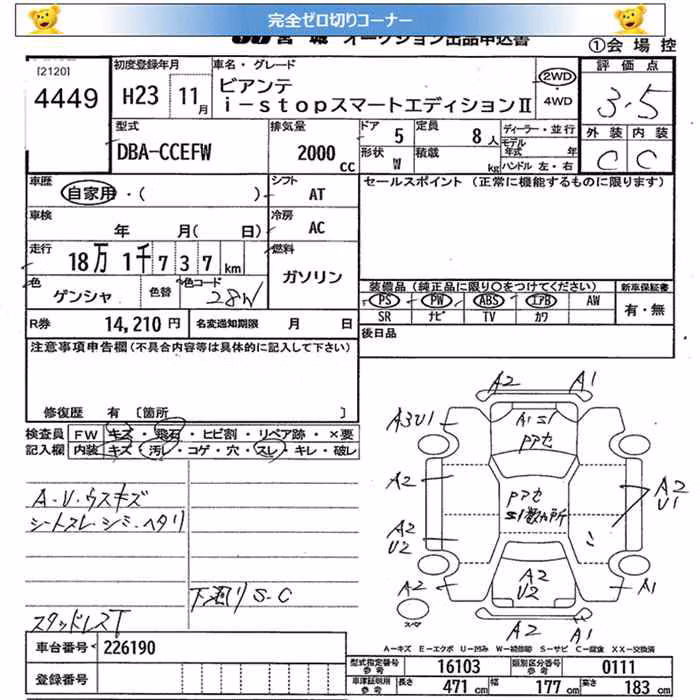 完全ゼロ切りコーナー
宮城 オークション出品申込書
①会場控
[2120]
4449
初度登録年月
H23 11月
車名・グレード
ビアンテ
i-stopスマートエディションⅡ
2WD
・
4WD
評価点
3.5
外装 内装
C C
型式
DBA-CCEFW
排気量
2000cc
ドア 5
定員 8人
形状 W
積載 kg
ディーラー・並行
モデル年式 年
ハンドル 左・右
車歴
自家用・( )
シフト AT
セールスポイント (正常に機能するものに限ります)
車検
年 月( 日)
冷房 AC
走行
18万1千737km
燃料
ガソリン
色
ゲンシャ
色替
色コード
28W
装備品(純正品に限り〇をつけてください)
PS PW ABS エアB AW
SR ナビ TV カワ
新車保証書
有・無
R券 14,210円
名変通知期限 月 日
後日品
注意事項申告欄(不具合内容等は具体的に記入して下さい)
修復歴 有 [箇所 ]
検査員記入欄
FW キズ・飛石・ヒビ割・リペア跡・×要
内装 キズ・汚レ・コゲ・穴・スレ・キレ・破レ
A・U・ウスキズ
シートスレ・シミ・ヘタリ
下廻りS・C
スタッドレスT
A2 A1
A3U1
A1S1
Pアセ
A2
Pアセ
S1数カ所
A2
U1
A2
U2
A2
A2
U2
A1
A2 A1
スペア
A-キズ E-エクボ U-凹み W-補修跡 S-サビ C-腐食 XX-交換済
車台番号 226190
登録番号
型式指定番号参考 16103
類別区分番号参考 0111
車庫証明用参考
長さ 471cm
幅 177cm
高さ 183cm